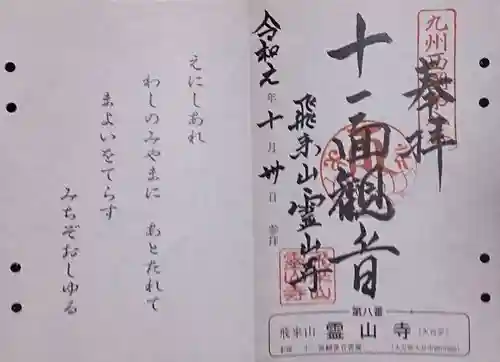 九州西国
奉拝
十一面観音
飛来山霊山寺
令和元年十月卅日 参拝
第八番
飛来山 霊山寺
えにしあれ
わしのみやまに あとたれて
まよいをてらす
みちぞおしゆる